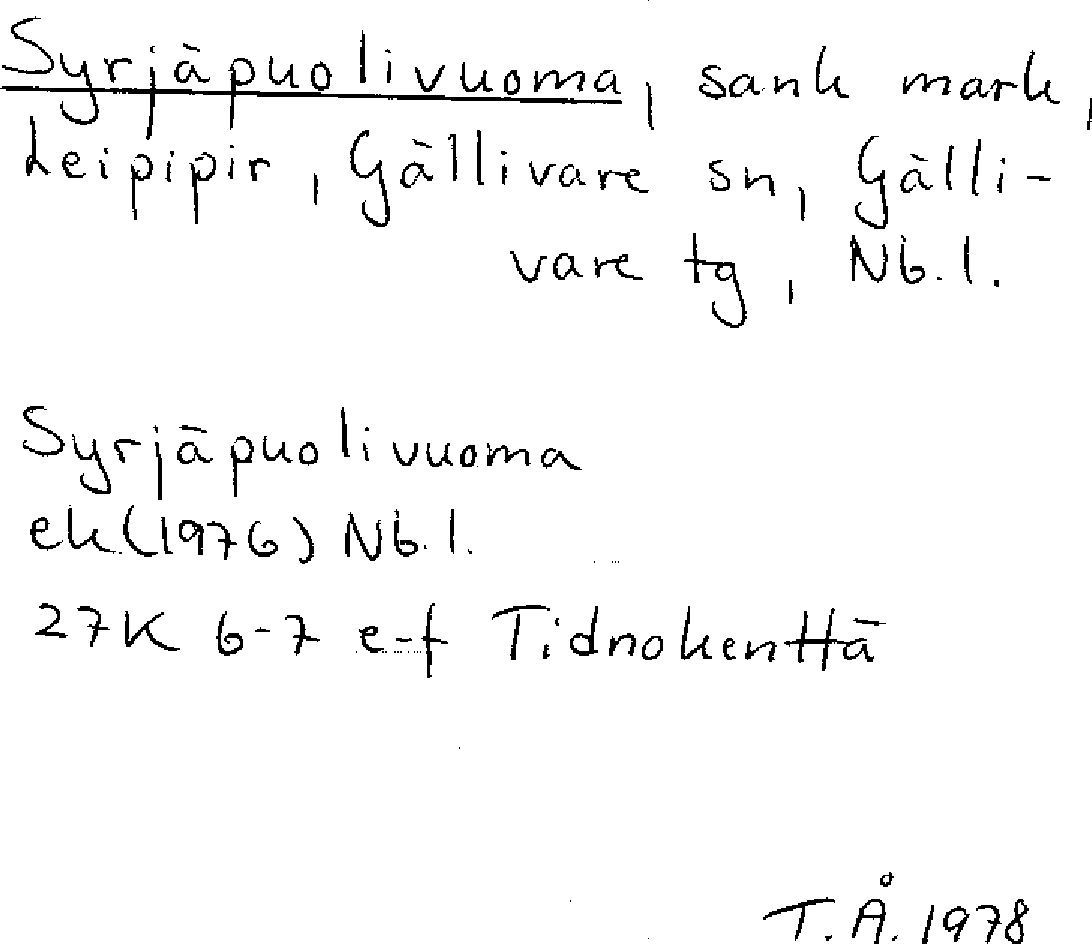 Syrjäpuolivuoma, sank mark,
Leipipir, Gällivare sn, Gälli-
vare tg, Nb.l.
Syrjäpuolivuoma
ek(1976) Nb.l.
27K 6-7 e-f Tidnokenttä
T.Å. 1978